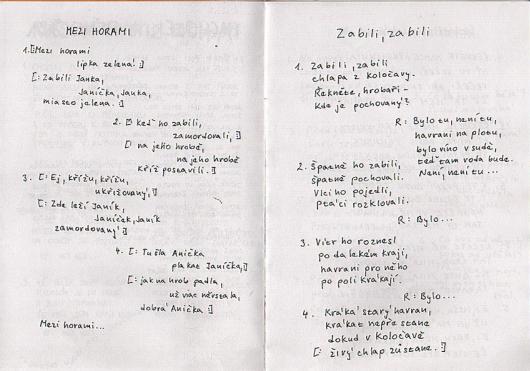 MEZI HORAMI
1. [: Mezi horami
lipka zelená! :]
[: Zabili Janka,
Janíčka, Janka,
miasto jelena. :]
2. [: Keď ho zabili,
zamordovali, :]
[: na jeho hrobě,
na jeho hrobě
kříž postavili. :]
3. [: Ej, křížu, křížu,
ukřižovaný, :]
[: Zde leží Janík,
Janíček, Janík
zamordovaný :]
4. [: Tu šla Anička
plakat Janíčka, :]
[: jak na hrob padla,
už viac nevstala,
dobrá Anička :]
Mezi horami...
Zabili, zabili
1. Zabili, zabili
chlapa z Koločavy.
Řekněte, hrobaři -
Kde je pochovaný?
R: Bylo tu, není tu,
havrani na plotu,
bylo víno v sudě,
teď tam voda bude.
Není, není tu...
2. Špatně ho zabili,
špatně pochovali.
Vlci ho pojedli,
ptáci rozklovali.
R: Bylo...
3. Vítr ho roznesl
po dalekém kraji,
havrani pro něho
po poli krákají.
R: Bylo...
4. Kráká starý havran,
krákat nepřestane
dokud v Koločavě
[: živý chlap zůstane. :]